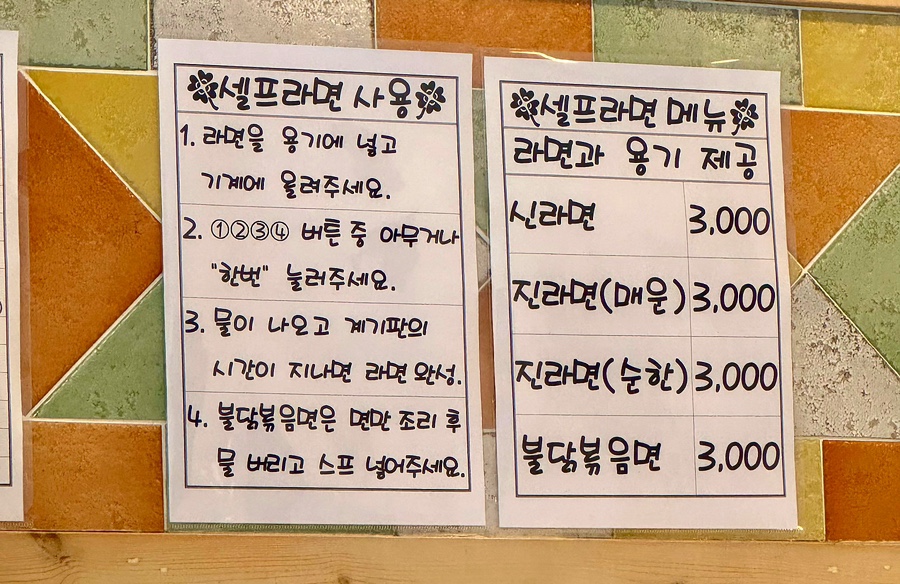 셀프라면 사용
1. 라면을 용기에 넣고
기계에 올려주세요.
2. ①②③④ 버튼 중 아무거나
"한번" 눌러주세요.
3. 물이 나오고 계기판의
시간이 지나면 라면 완성.
4. 불닭볶음면은 면만 조리 후
물 버리고 스프 넣어주세요.
셀프라면 메뉴
라면과 용기 제공
신라면 3,000
진라면(매운) 3,000
진라면(순한) 3,000
불닭볶음면 3,000